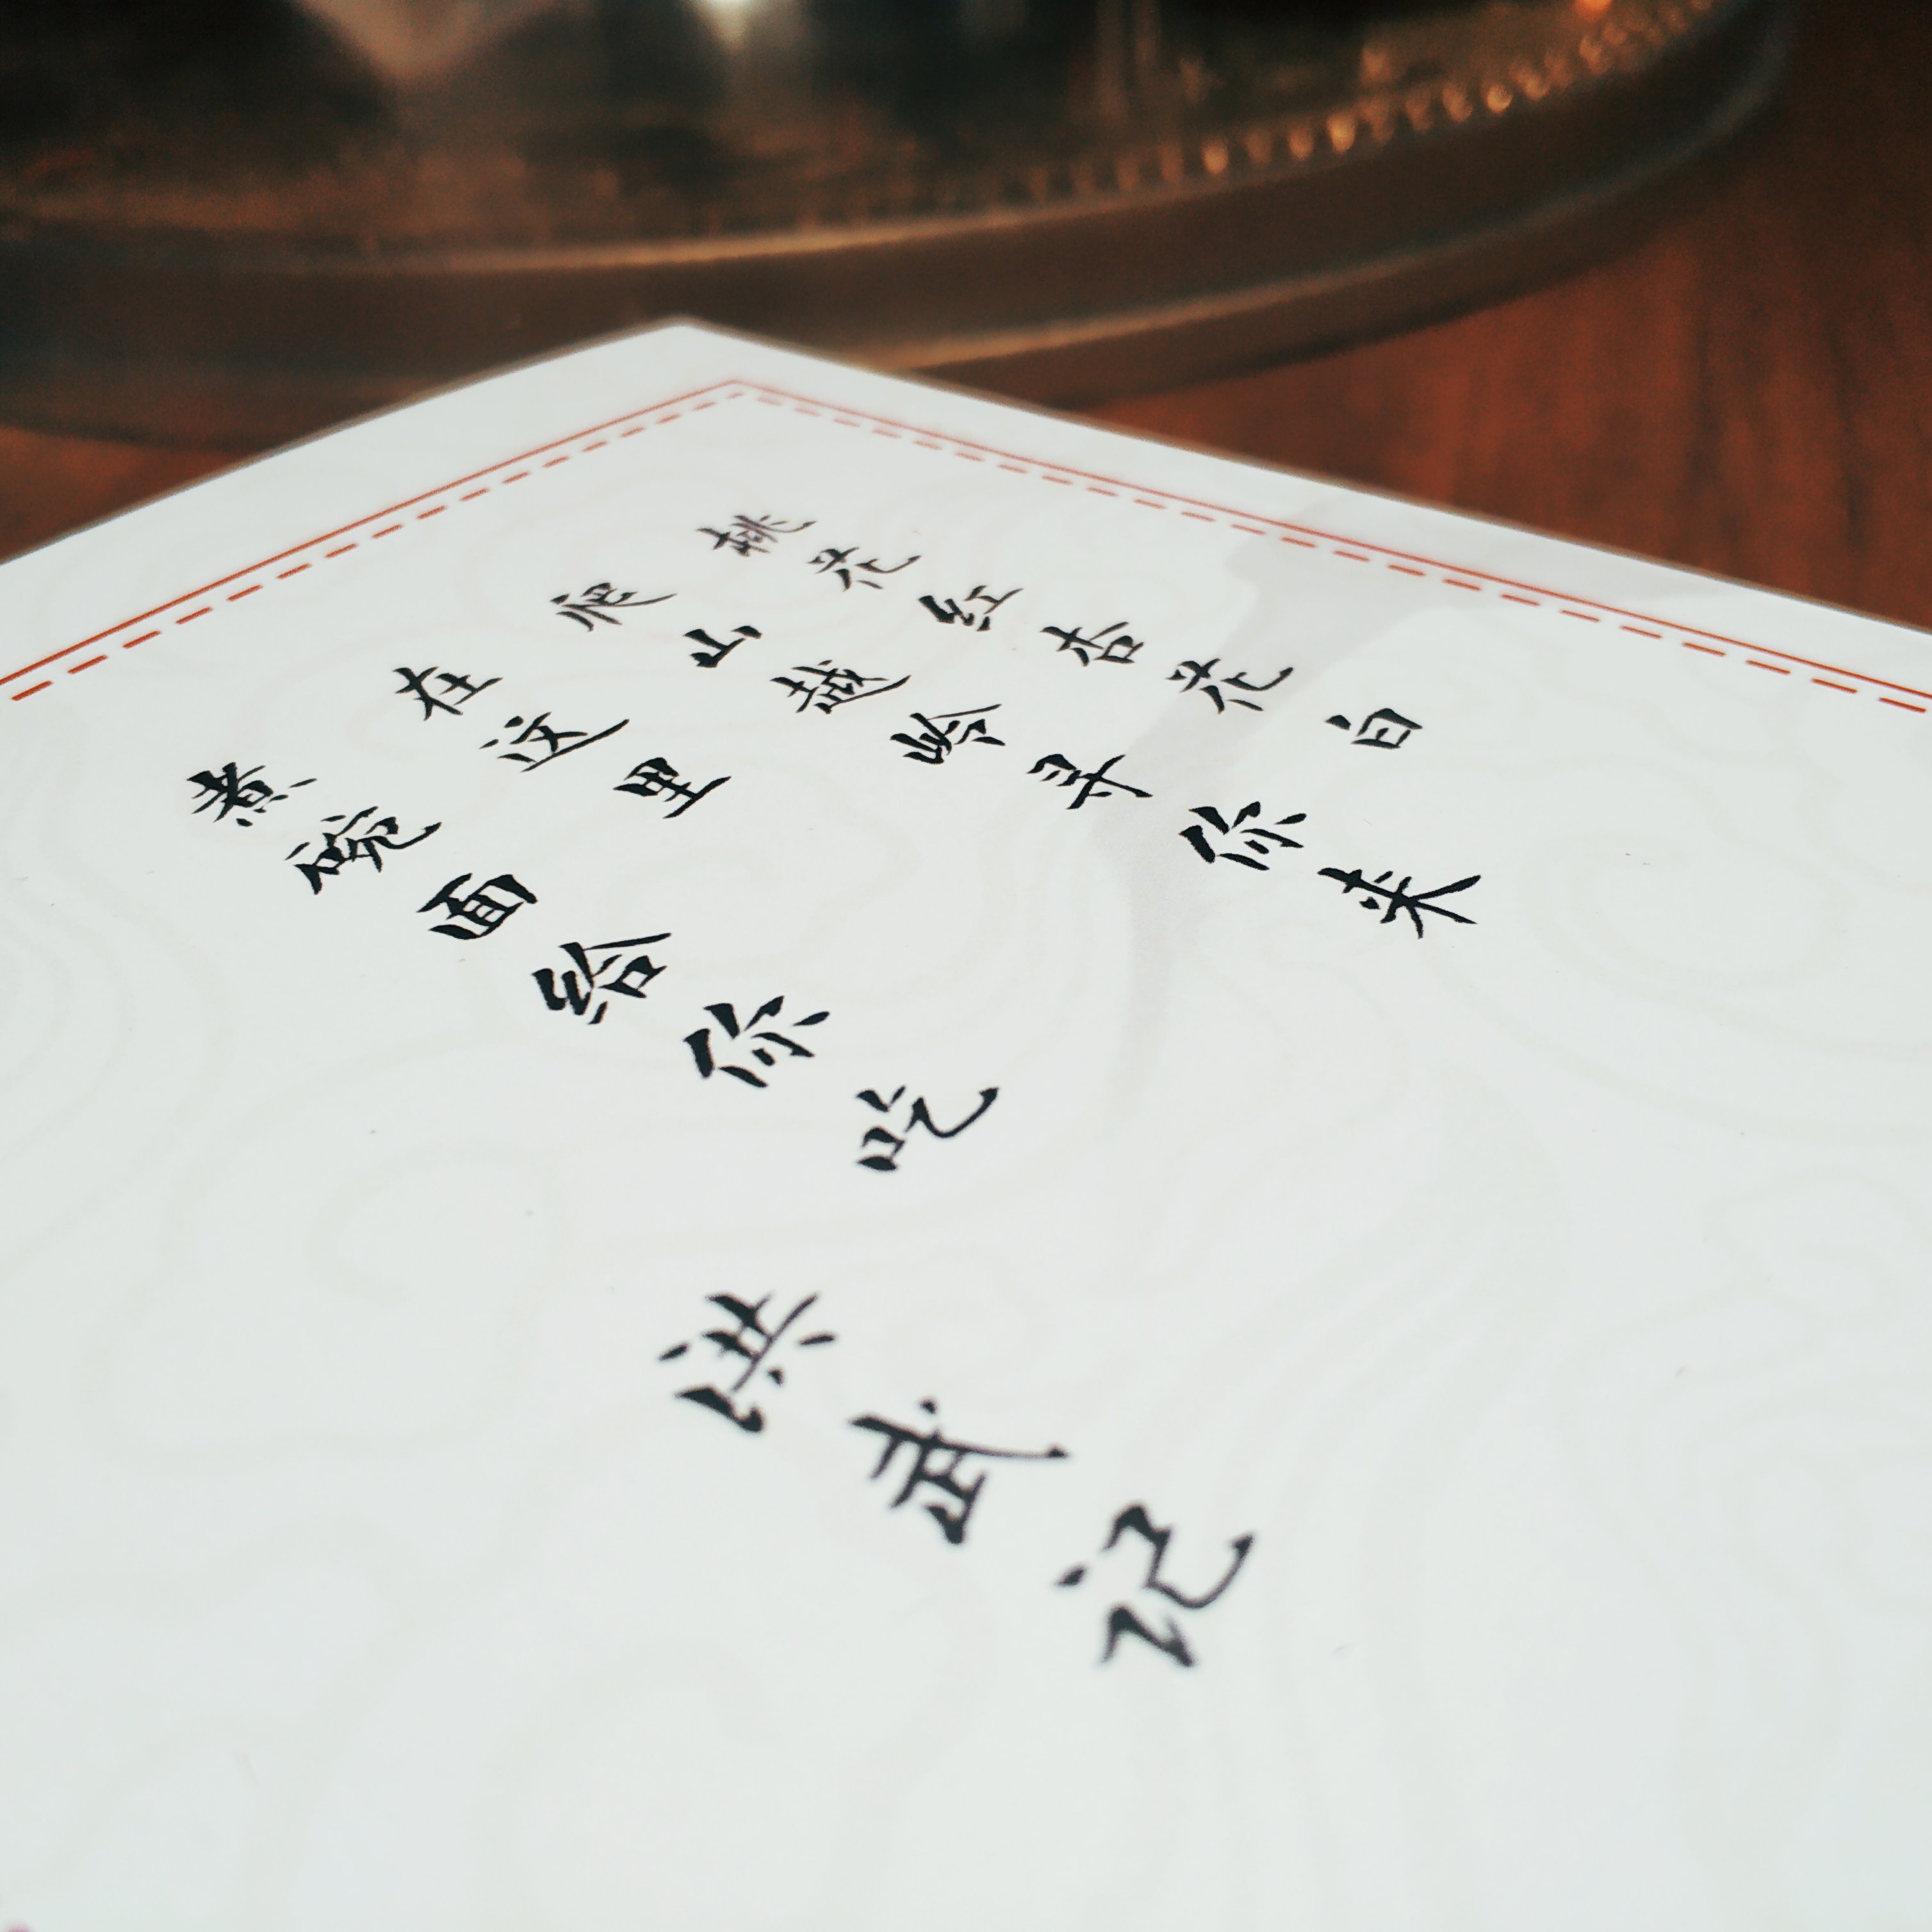 桃花红杏花白
爬山越岭寻你来
在这里
煮碗面给你吃
洪武记